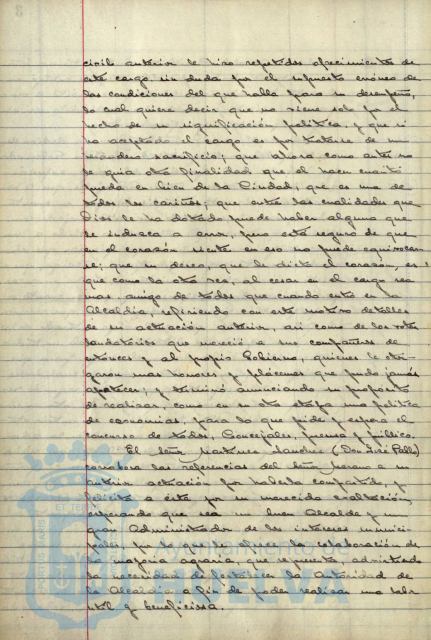 civil anterior le hizo repetidos ofrecimientos de
este cargo, sin duda por el supuesto erróneo de
las condiciones del que habla para su desempeño,
lo cual quiere decir que no viene solo por el
hecho de su significación política, y que si
ha aceptado el cargo es por tratarse de un
verdadero sacrificio; que ahora como antes no
le guia otra finalidad que el hacer cuanto
pueda en bien de la Ciudad, que es una de
todos los cariños; que entre las cualidades que
Dios le ha dotado puede haber alguna que
le induzca a error, pero está seguro de que
en el corazón siente en eso no puede equivocar
se; que su deseo, que le dicta el corazón, es
que como la otra vez, al cesar en el cargo sea
mas amigo de todos que cuando entró en la
Alcaldía, refiriendo con este motivo detalles
de su actuación anterior, asi como de los votos
laudatorios que mereció a sus compañeros de
entonces y al propio Gobierno, quienes le otor
garon mas honores y plácemes que pudo jamás
apetecer; y terminó anunciando su proposito
de realizar, como en su otra etapa una politica
de economias, para lo que pide y espera el
concurso de todos, Concejales, prensa y público.
El señor Martinez Sanchez (Don José Pablo)
corrobora las referencias del señor a su
anterior actuación por haberla compartido, y
felicita a éste por su merecida exaltación,
esperando que sea un buen Alcalde y un
gran Administrador de los intereses munici
pales, por lo que le ofrece la colaboración de
la mayoria agraria, que representa, admitiendo
la necesidad de fortalecer la Autoridad de
la Alcaldia a fin de poder realizar una labor
util y beneficiosa.
Ayuntamiento de
HUELVA